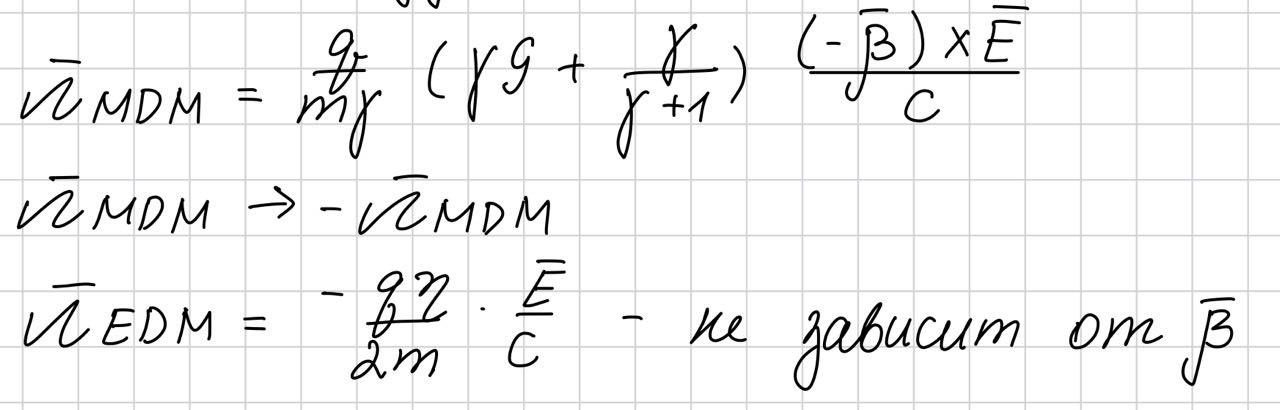 Ω̄ MDM = q/(mγ) (γG + γ/(γ+1)) ((-β̄) × Ē)/c
Ω̄ MDM → -Ω̄ MDM
Ω̄ EDM = - qη/(2m) · Ē/c - не зависит от β̄